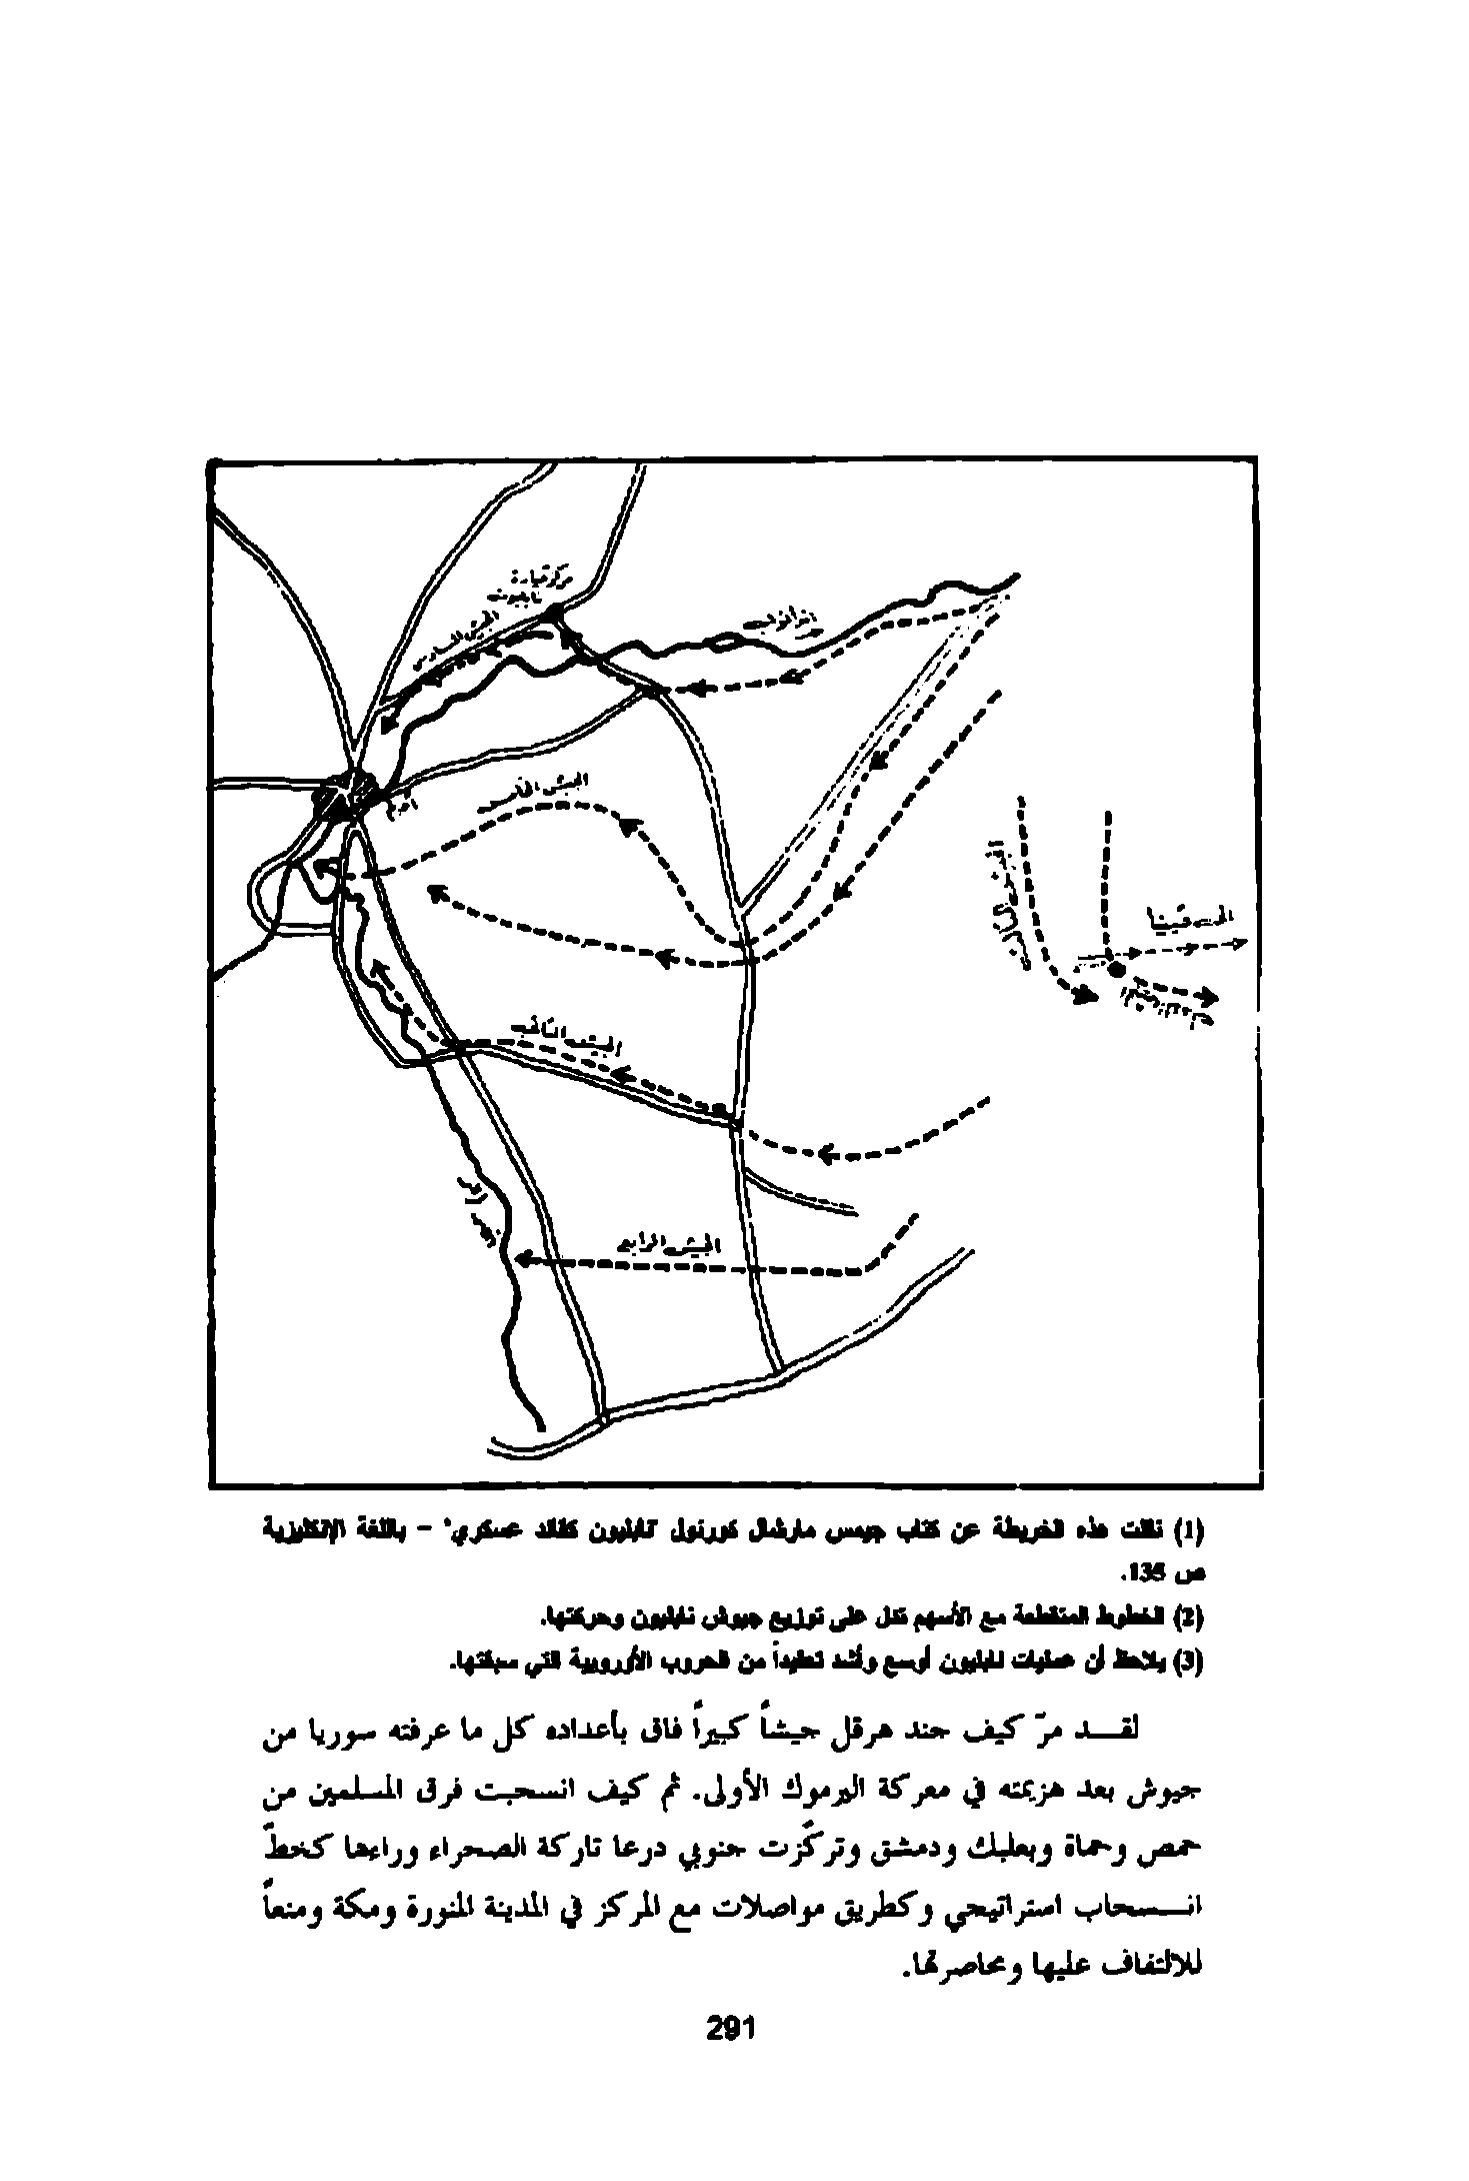 مركز قيادة
نابليون
الجيش السادس
نهر الدانوب
أولم
الجيش الخامس
الجيش الثاني
الجيش الرابع
نهر
إلى فيينا
(1) نقلت هذه الخريطة عن كتاب جيمس مارشال كورنول "نابليون كقائد عسكري" - باللغة الإنكليزية
ص 135.
(2) الخطوط المتقطعة مع الأسهم تدل على توزيع جيوش نابليون وحركتها.
(3) يلاحظ أن عمليات نابليون أوسع وأشد تعقيداً من الحروب الأوروبية التي سبقتها.
لقد مرّ كيف جند هرقل جيشاً كبيراً فاق بأعداده كل ما عرفته سوريا من
جيوش بعد هزيمته في معركة اليرموك الأولى. ثم كيف انسحبت فرق المسلمين من
حمص وحماة وبعلبك ودمشق وتركّزت جنوبي درعا تاركة الصحراء وراءها كخطّ
انسحاب استراتيجي وكطريق مواصلات مع المركز في المدينة المنورة ومكة ومنعاً
للالتفاف عليها ومحاصرتها.
291